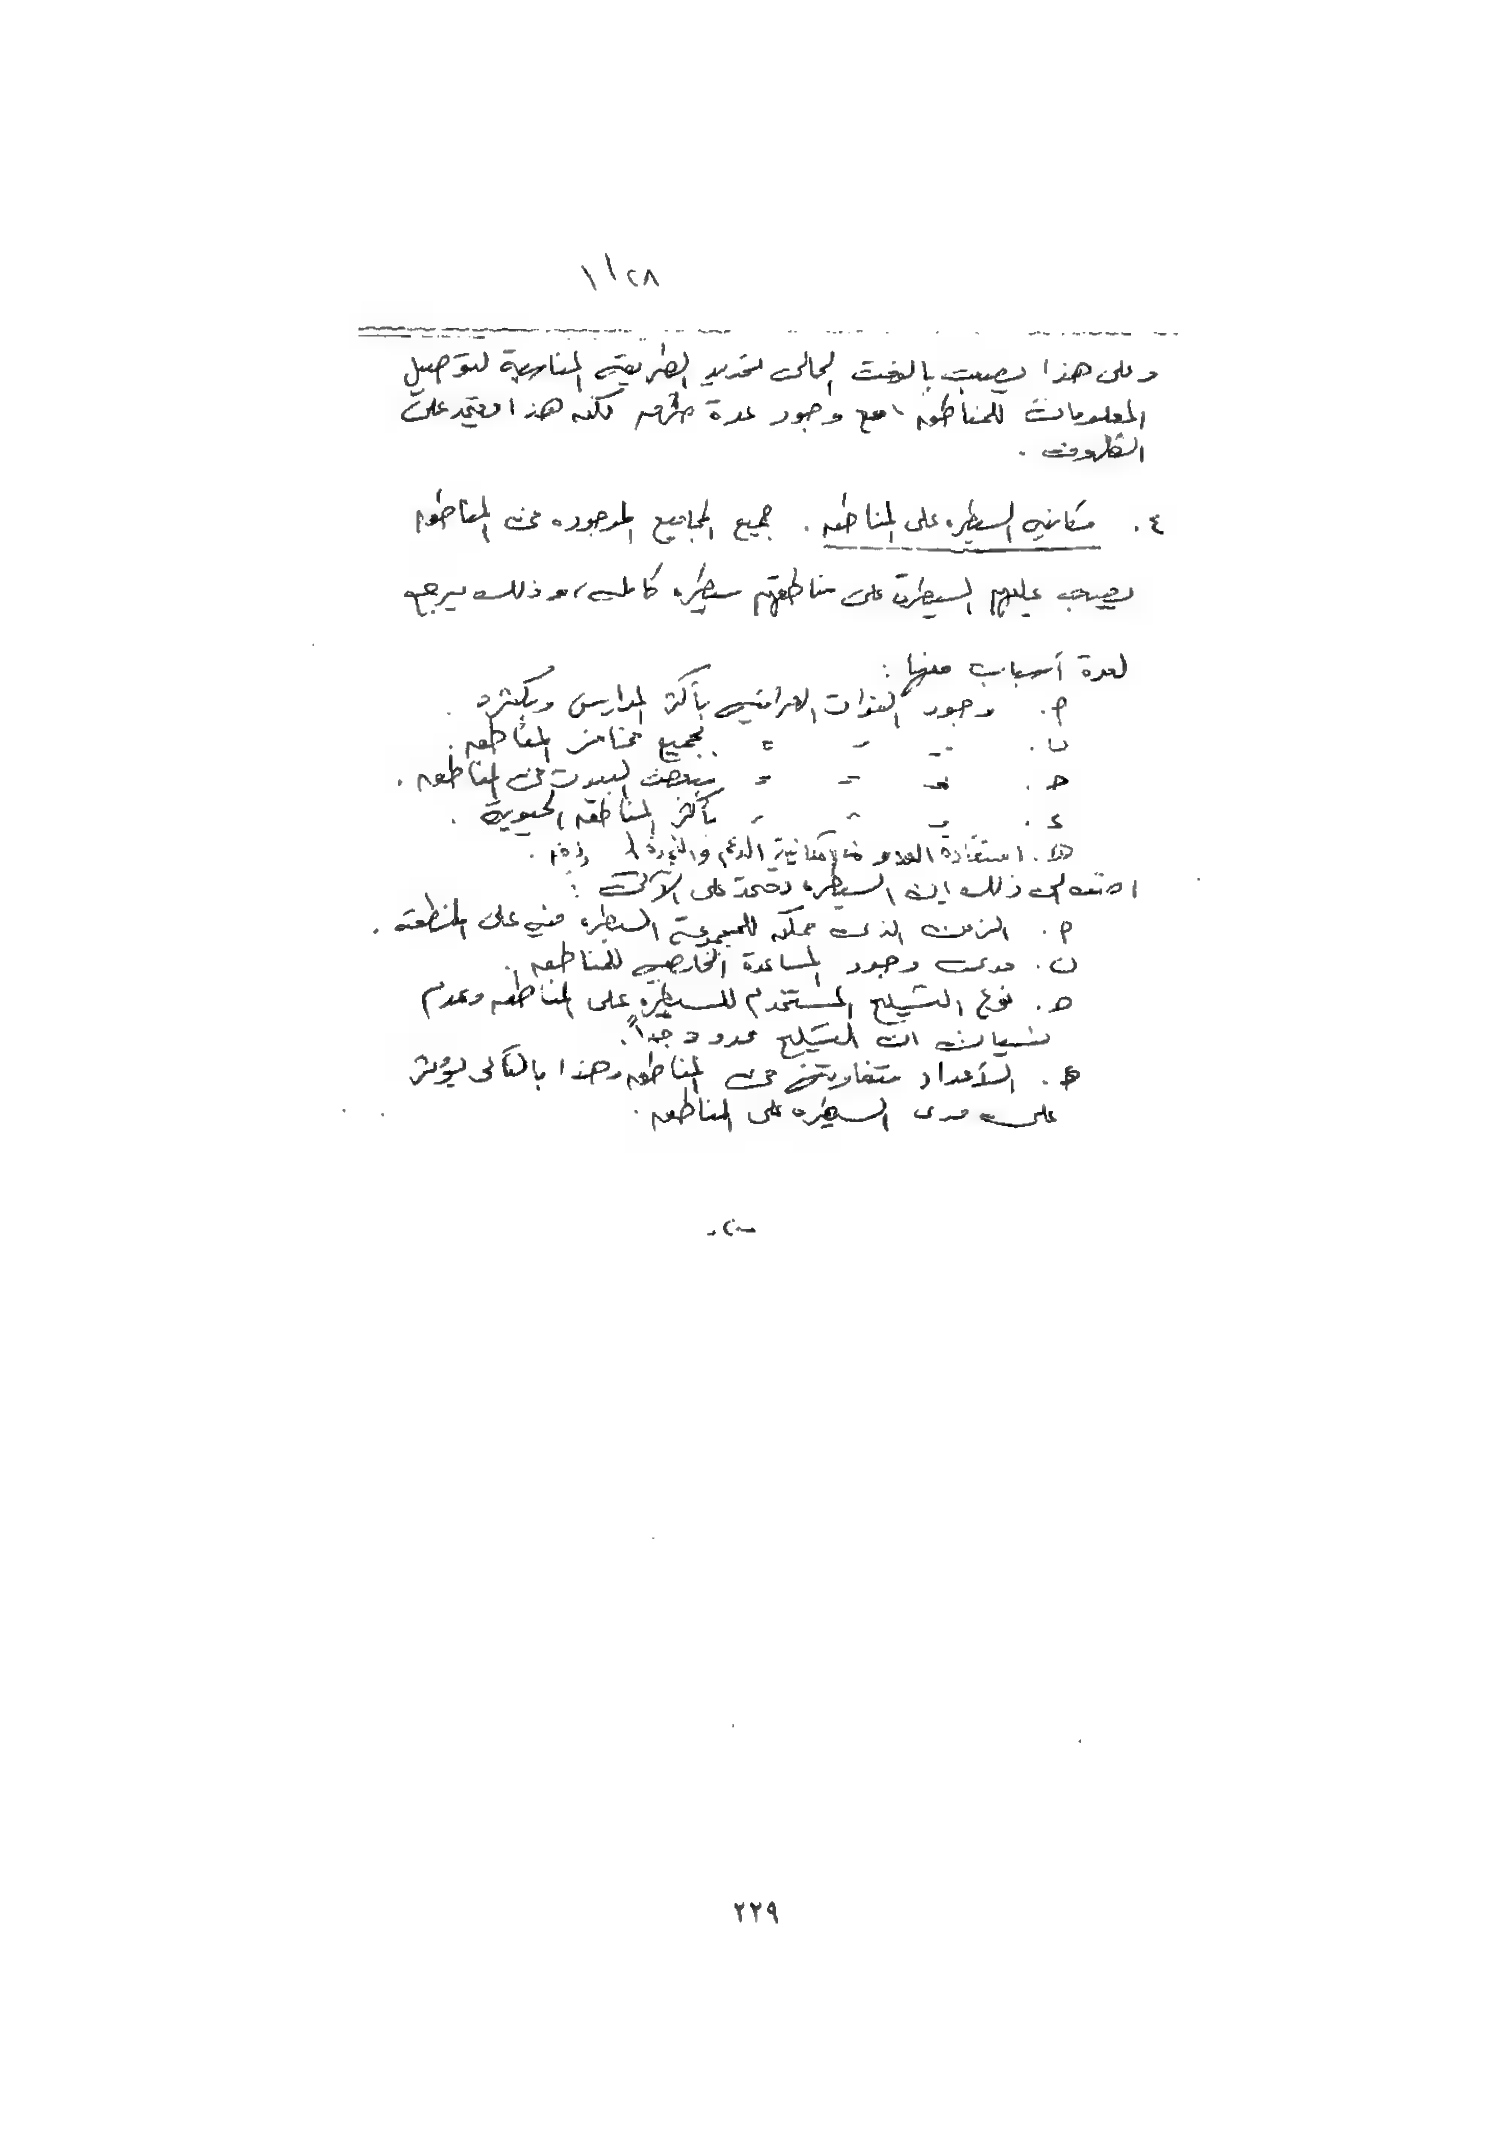 ١١/٢٨
وعلى هذا يصعب بالوقت الحالي تحديد الطريقة المناسبة لتوصيل
المعلومات للمناطق مع وجود عدة طرق لكن هذا يعتمد على
الظروف .
٤. مكانيه السيطره على المناطق . جميع المجاميع الموجوده في المناطق
يصعب عليهم السيطرة على مناطقهم سيطره كامله ، وذلك يرجع
لعدة أسباب منها :
م. وجود القوات العراقيه بأكثر المدارس وبكثره .
ب. = = = بجميع مخافر المناطق .
حـ. = = = ببعض البيوت في المناطق .
د. = = = بأكثر المناطق الحيوية .
هـ. استفادة العدو من امكانية الدعم
اضف الى ذلك ان السيطره تعتمد على الآتي :
م. الزمن الذي يمكن للمجموعة السيطره فيه على المنطقه .
ب. مدى وجود المساعدة الخارجيه للمناطق .
حـ. نوع التسليح المستخدم للسيطره على المناطق وعدم
نسيان ان التسليح محدود جداً .
د. الأعداد متفاوته في المناطق وهذا بالتالي يؤثر
على مدى السيطره على المناطق .
-٢-
٢٢٩